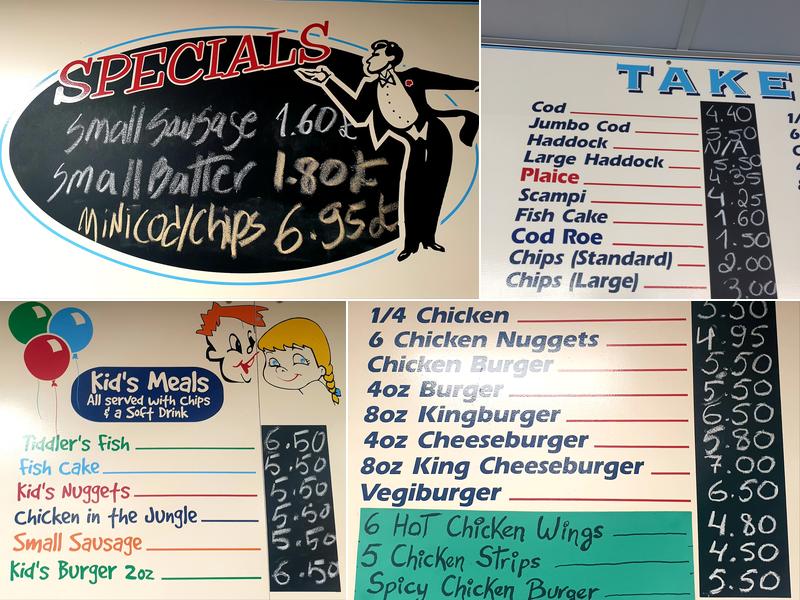 SPECIALS
Small Sausage 1.60£
Small Batter 1.80£
Mini Cod/Chips 6.95£
TAKE
Cod 4.40
Jumbo Cod 5.50
Haddock N/A
Large Haddock 5.50
Plaice 4.35
Scampi 4.25
Fish Cake 1.60
Cod Roe 1.50
Chips (Standard) 2.00
Chips (Large) 3.00
1/
6
Kid's Meals
All served with Chips
& a Soft Drink
Tiddler's Fish 6.50
Fish Cake 5.50
Kid's Nuggets 5.50
Chicken in the Jungle 5.50
Small Sausage 5.50
Kid's Burger 2oz 6.50
1/4 Chicken 5.50
6 Chicken Nuggets 4.95
Chicken Burger 5.50
4oz Burger 5.50
8oz Kingburger 6.50
4oz Cheeseburger 5.80
8oz King Cheeseburger 7.00
Vegiburger 6.50
6 Hot Chicken Wings 4.80
5 Chicken Strips 4.50
Spicy Chicken Burger 5.50